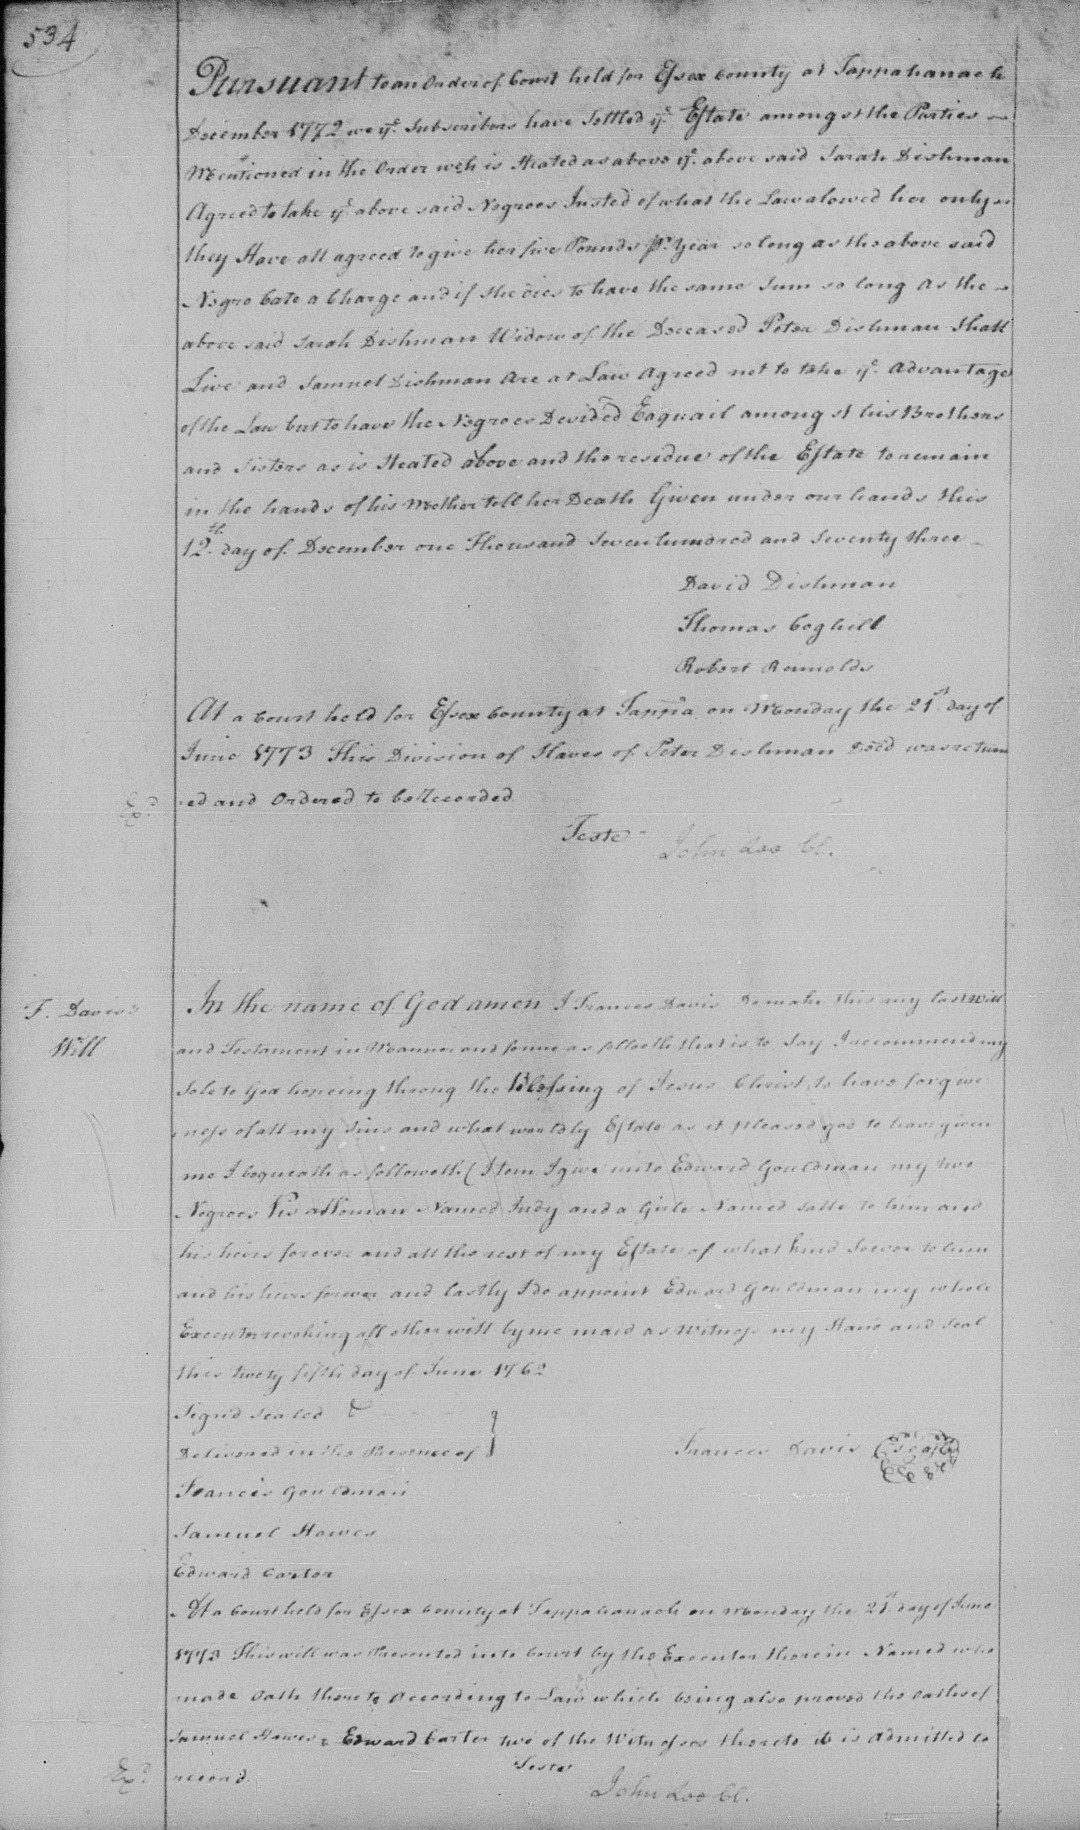 534
Pursuant to an Order of Court held for Essex County at Tappahanack
December 1772 we ye Subscribers have Settled ye Estate amongst the Parties
Mentioned in the Order wch is Steated as above ye above said Sarah Dishman
Agreed to take ye above said Negroes Insted of what the Law alowed her only
they Have all agreed to give her five Pounds pr Year so long as the above said
Negro Cate a Charge and if She dies to have the same Sum so long As the
above said Sarah Dishman Widow of the Deceased Peter Dishman Shall
Live and Samuel Dishman Are at Law Agreed not to take ye Advantage
of the Law but to have the Negroes Devided Eaquail amongst his Brothers
and Sisters as is Steated above and the residue of the Estate to remain
in the hands of his Mother tell her Death Given under our hands this
12th day of December one Thousand Seven hundred and Seventy three
David Dishman
Thomas Coghill
Robert Reunolds
At a Court held for Essex County at Tappa on Monday the 21st day of
June 1773 This Division of Slaves of Peter Dishman Deced was return
ed and Ordered to be Recorded
Exd
Teste John Lee Cl.
F. Davis's
Will
In the name of God amen I Frances Davis do make this my last Will
and Testament in Manner and forme as folloeth that is to Say I recommend my
Sole to God hopeing throug the Blessing of Jesus Christ to have forgive
ness of all my Sins and what worldly Estate as it pleased god to have given
me I bequeath as followeth (Item I give unto Edward Gouldman my two
Negroes Vis a Woman Named Judy and a Girle Named Salle to him and
his heirs forever and all the rest of my Estate of what kind Soever to him
and his heirs forever and lastly I do appoint Edward Gouldman my whole
Executor revoking all other will by me maid as Witness my Hand and Seal
this twety fifth day of June 1762
Signd Sealed &
Delivered in the Presence of
Frances Davis (Seal)
Francis Gouldman
Samuel Hawes
Edward Carter
At a Court held for Essex County at Tappahanack on Monday the 21st day of June
1773 This will was Presented into Court by the Executor therein Named who
made Oath thereto According to Law which being also proved the oathes of
Samuel Hawes & Edward Carter two of the Witnesses thereto it is Admitted to
record
Exd
Teste
John Lee Cl.